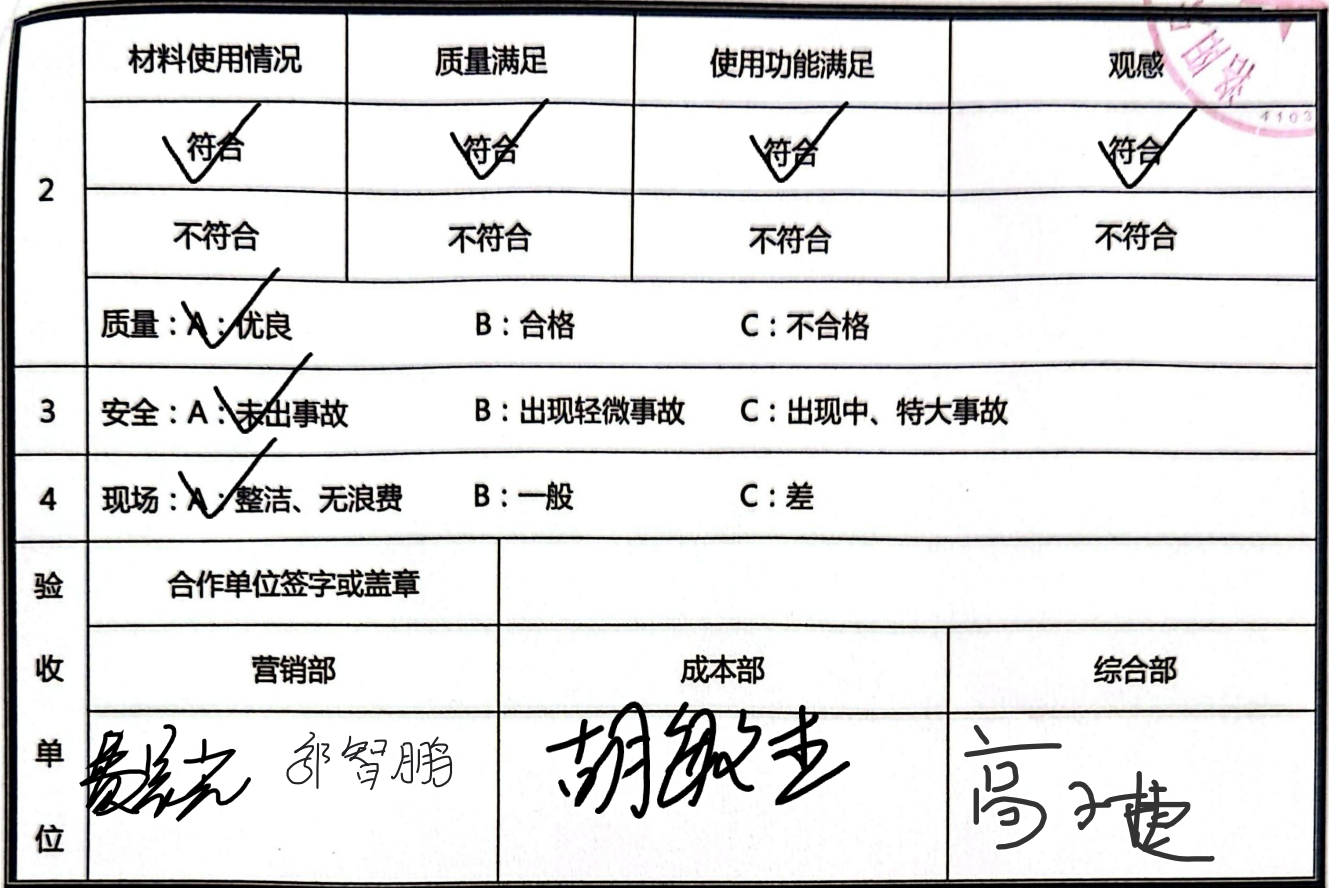 材料使用情况 质量满足 使用功能满足 观感
4103
符合 符合 符合 符合
2
不符合 不符合 不符合 不符合
质量：A：优良 B：合格 C：不合格
3 安全：A：未出事故 B：出现轻微事故 C：出现中、特大事故
4 现场：A：整洁、无浪费 B：一般 C：差
验 合作单位签字或盖章
收 营销部 成本部 综合部
单 智鹏 胡敏 高
位